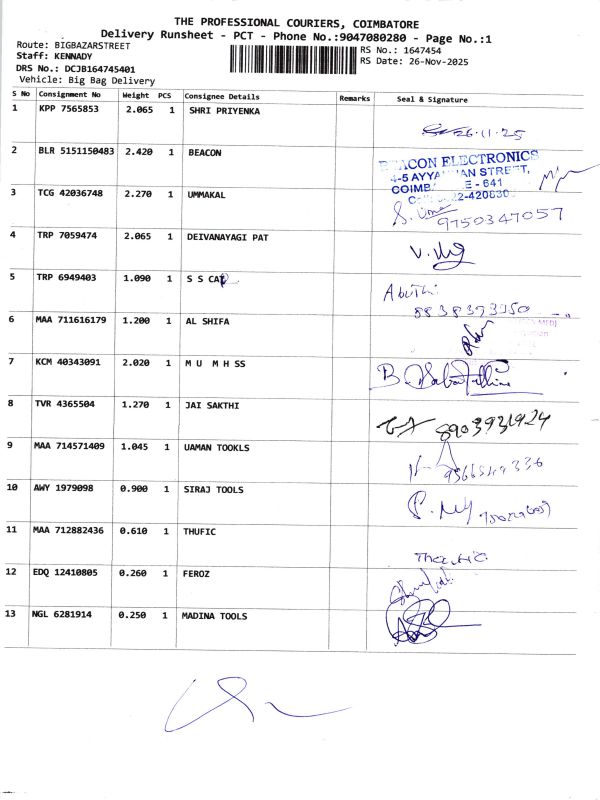 THE PROFESSIONAL COURIERS, COIMBATORE
Delivery Runsheet - PCT - Phone No.:9047080280 - Page No.:1
Route: BIGBAZARSTREET
RS No.: 1647454
Staff: KENNADY
RS Date: 26-Nov-2025
DRS No.: DCJB164745401
Vehicle: Big Bag Delivery
S No Consignment No Weight PCS Consignee Details Remarks Seal & Signature
1 KPP 7565853 2.065 1 SHRI PRIYENKA
26.11.25
2 BLR 5151150483 2.420 1 BEACON
BEACON ELECTRONICS
STREET,
- 641
3 TCG 42036748 2.270 1 UMMAKAL
9750347057
4 TRP 7059474 2.065 1 DEIVANAYAGI PAT
5 TRP 6949403 1.090 1 S S CAR
6 MAA 711616179 1.200 1 AL SHIFA
7 KCM 40343091 2.020 1 M U M H SS
8 TVR 4365504 1.270 1 JAI SAKTHI
9 MAA 714571409 1.045 1 UAMAN TOOKLS
10 AWY 1979098 0.900 1 SIRAJ TOOLS
11 MAA 712882436 0.610 1 THUFIC
12 EDQ 12410805 0.260 1 FEROZ
13 NGL 6281914 0.250 1 MADINA TOOLS